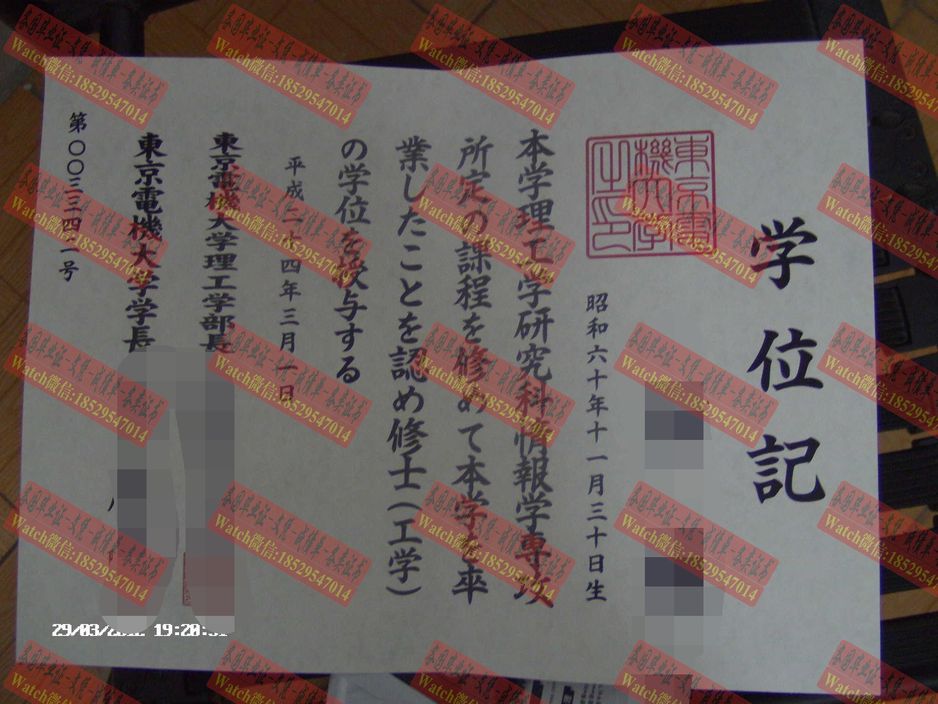 学位記
東京電機大学之印
昭和六十年十一月三十日生
本学理工学研究科情報学専攻
所定の課程を修めて本学を卒
業したことを認め修士(工学)
の学位を授与する
平成二十四年三月一日
東京電機大学理工学部長
東京電機大学学長
第〇〇三三四二一号
29/03/ 19:20:
Watch微信:18529547014